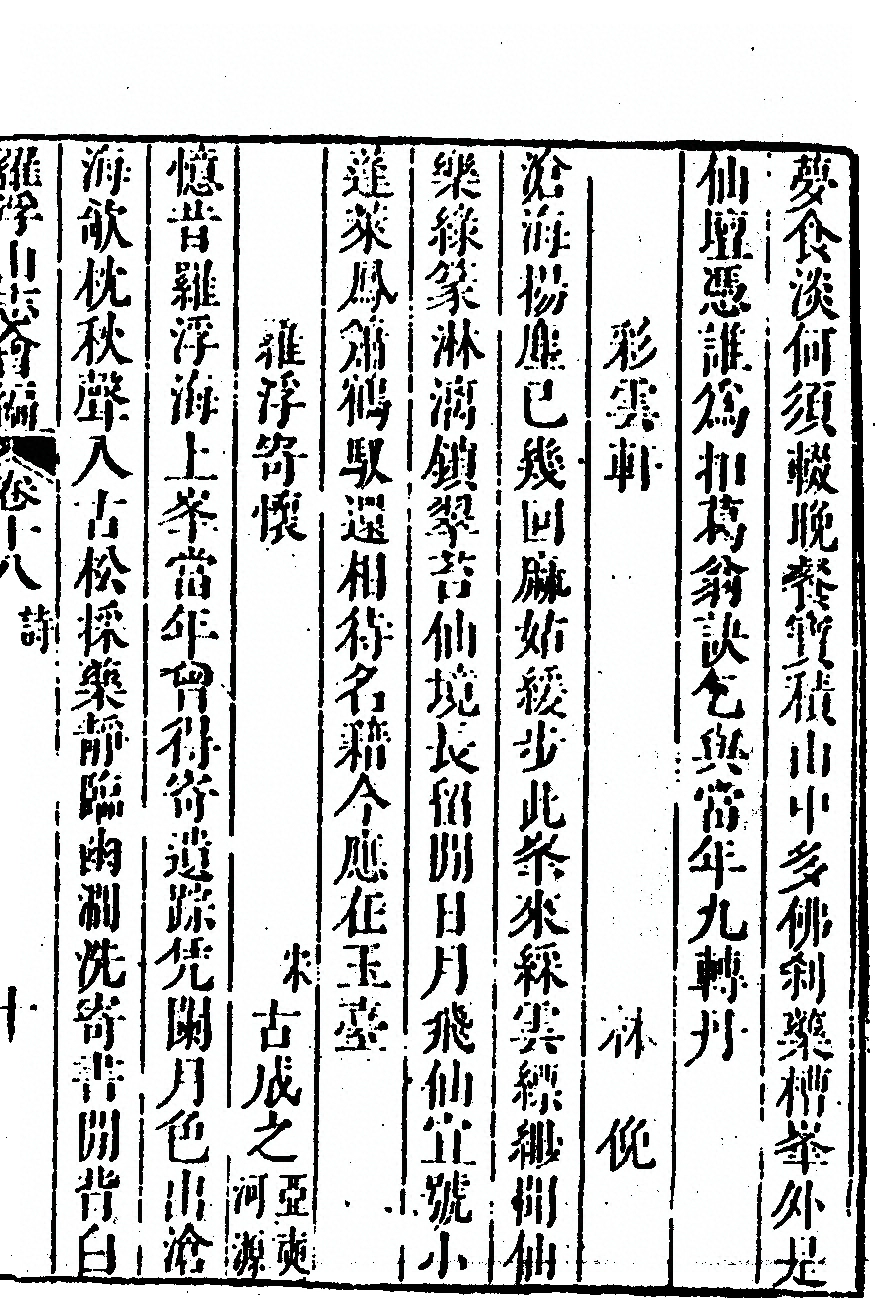 夢食淡何須輟晚餐寶積山中多佛刹藥槽峯外是
仙壇憑誰爲扣葛翁訣乞與當年九轉丹
彩雲軒 林俛
滄海揚塵已幾回麻姑緩步此峯來綵雲縹緲開仙
樂綠篆淋漓鎖翠苔仙境長留閒日月飛仙宜號小
蓬萊鳳簫鶴馭還相待名籍今應在玉臺
羅浮寄懷 宋古成之亞奭河源
憶昔羅浮海上峯當年曾得寄遺踪凭闌月色出滄
海欹枕秋聲入古松採藥靜臨幽澗洗寄書閒背白
羅浮山志會編 卷十八 詩 十